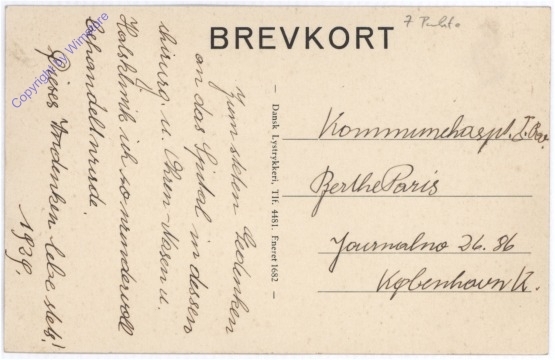 7 
BREVKORT
Zum steten Gedenken
an das Spital in dessen
chirurg. u. Ohren-Nasen u.
Halsklinik ich so wundervoll
behandelt wurde.
Dieses Andenken lebe stets!
1939.
— Dansk Lystrykkeri, Tlf. 4481. Eneret 1682 —
Kommunehospl. I. 
Berthe Paris
Journalno 26.86
København K.
Copyright ©